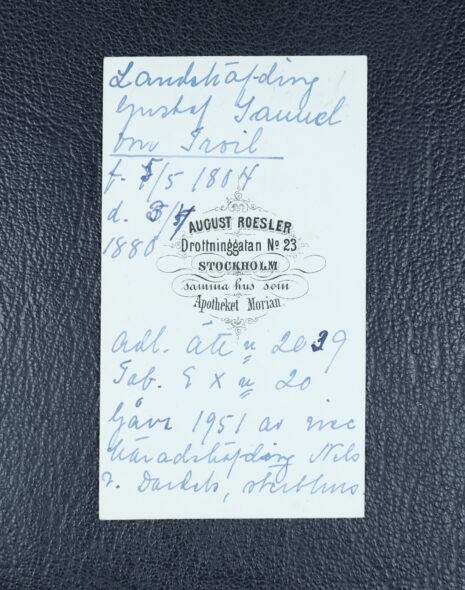 Landshöfding
Gustaf Samuel
von Troil
f. 5/5 1804
d. 3/4
1880
AUGUST ROESLER
Drottninggatan No 23
STOCKHOLM
samma hus som
Apotheket Morian
adl. ätt n 2039
Tab. E X n 20
Gåva 1951 av vice
häradshöfding Nils
v. Dardels, sterbhus